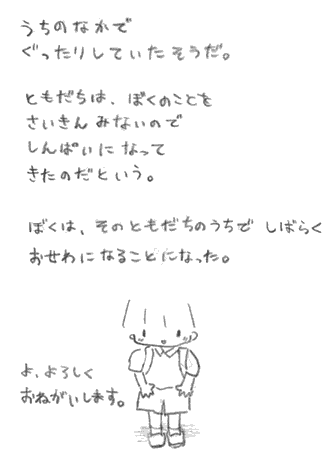 うちのなかで
ぐったりしていたそうだ。
ともだちは、ぼくのことを
さいきん みないので
しんぱいに なって
きたのだという。
ぼくは、そのともだちのうちで しばらく
おせわに なることになった。
よ、よろしく
おねがいします。